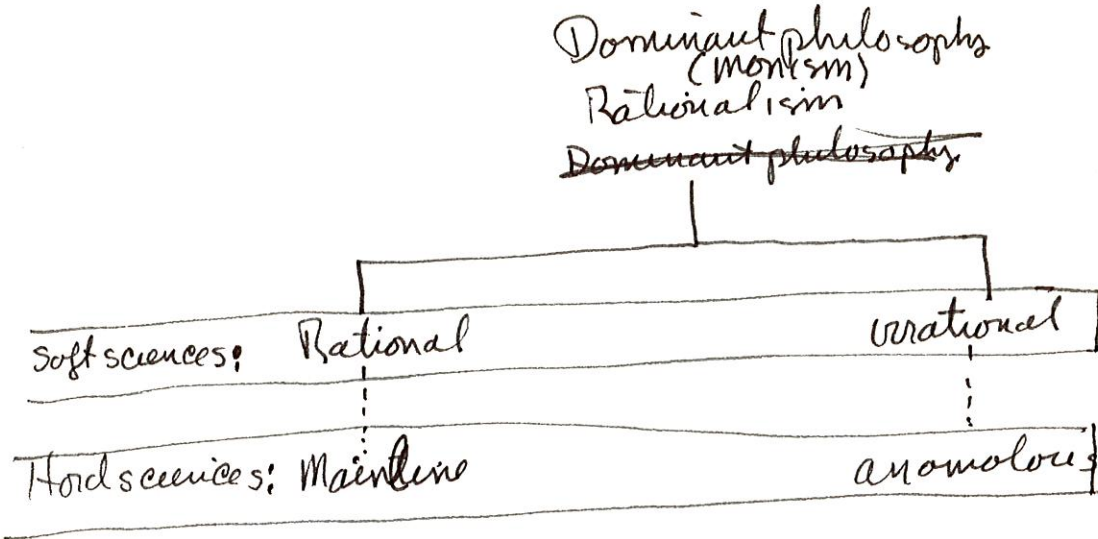 Dominant philosophy
(monism)
Rationalism
Dominant philosophy
Soft sciences: Rational irrational
Hard sciences: Mainline anomolous